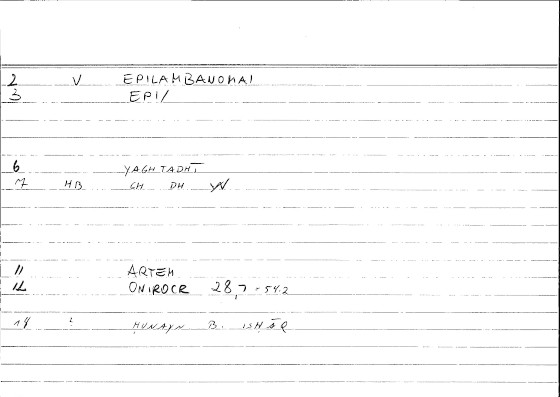 2 V EPILAMBANOMAI
3 EPI/
6 YAGHTADHĪ
7 HB GH DH W
11 ARTEM
12 ONIROCR 28,7 - 54.2
14 : ḤUNAYN B. ISḤĀQ